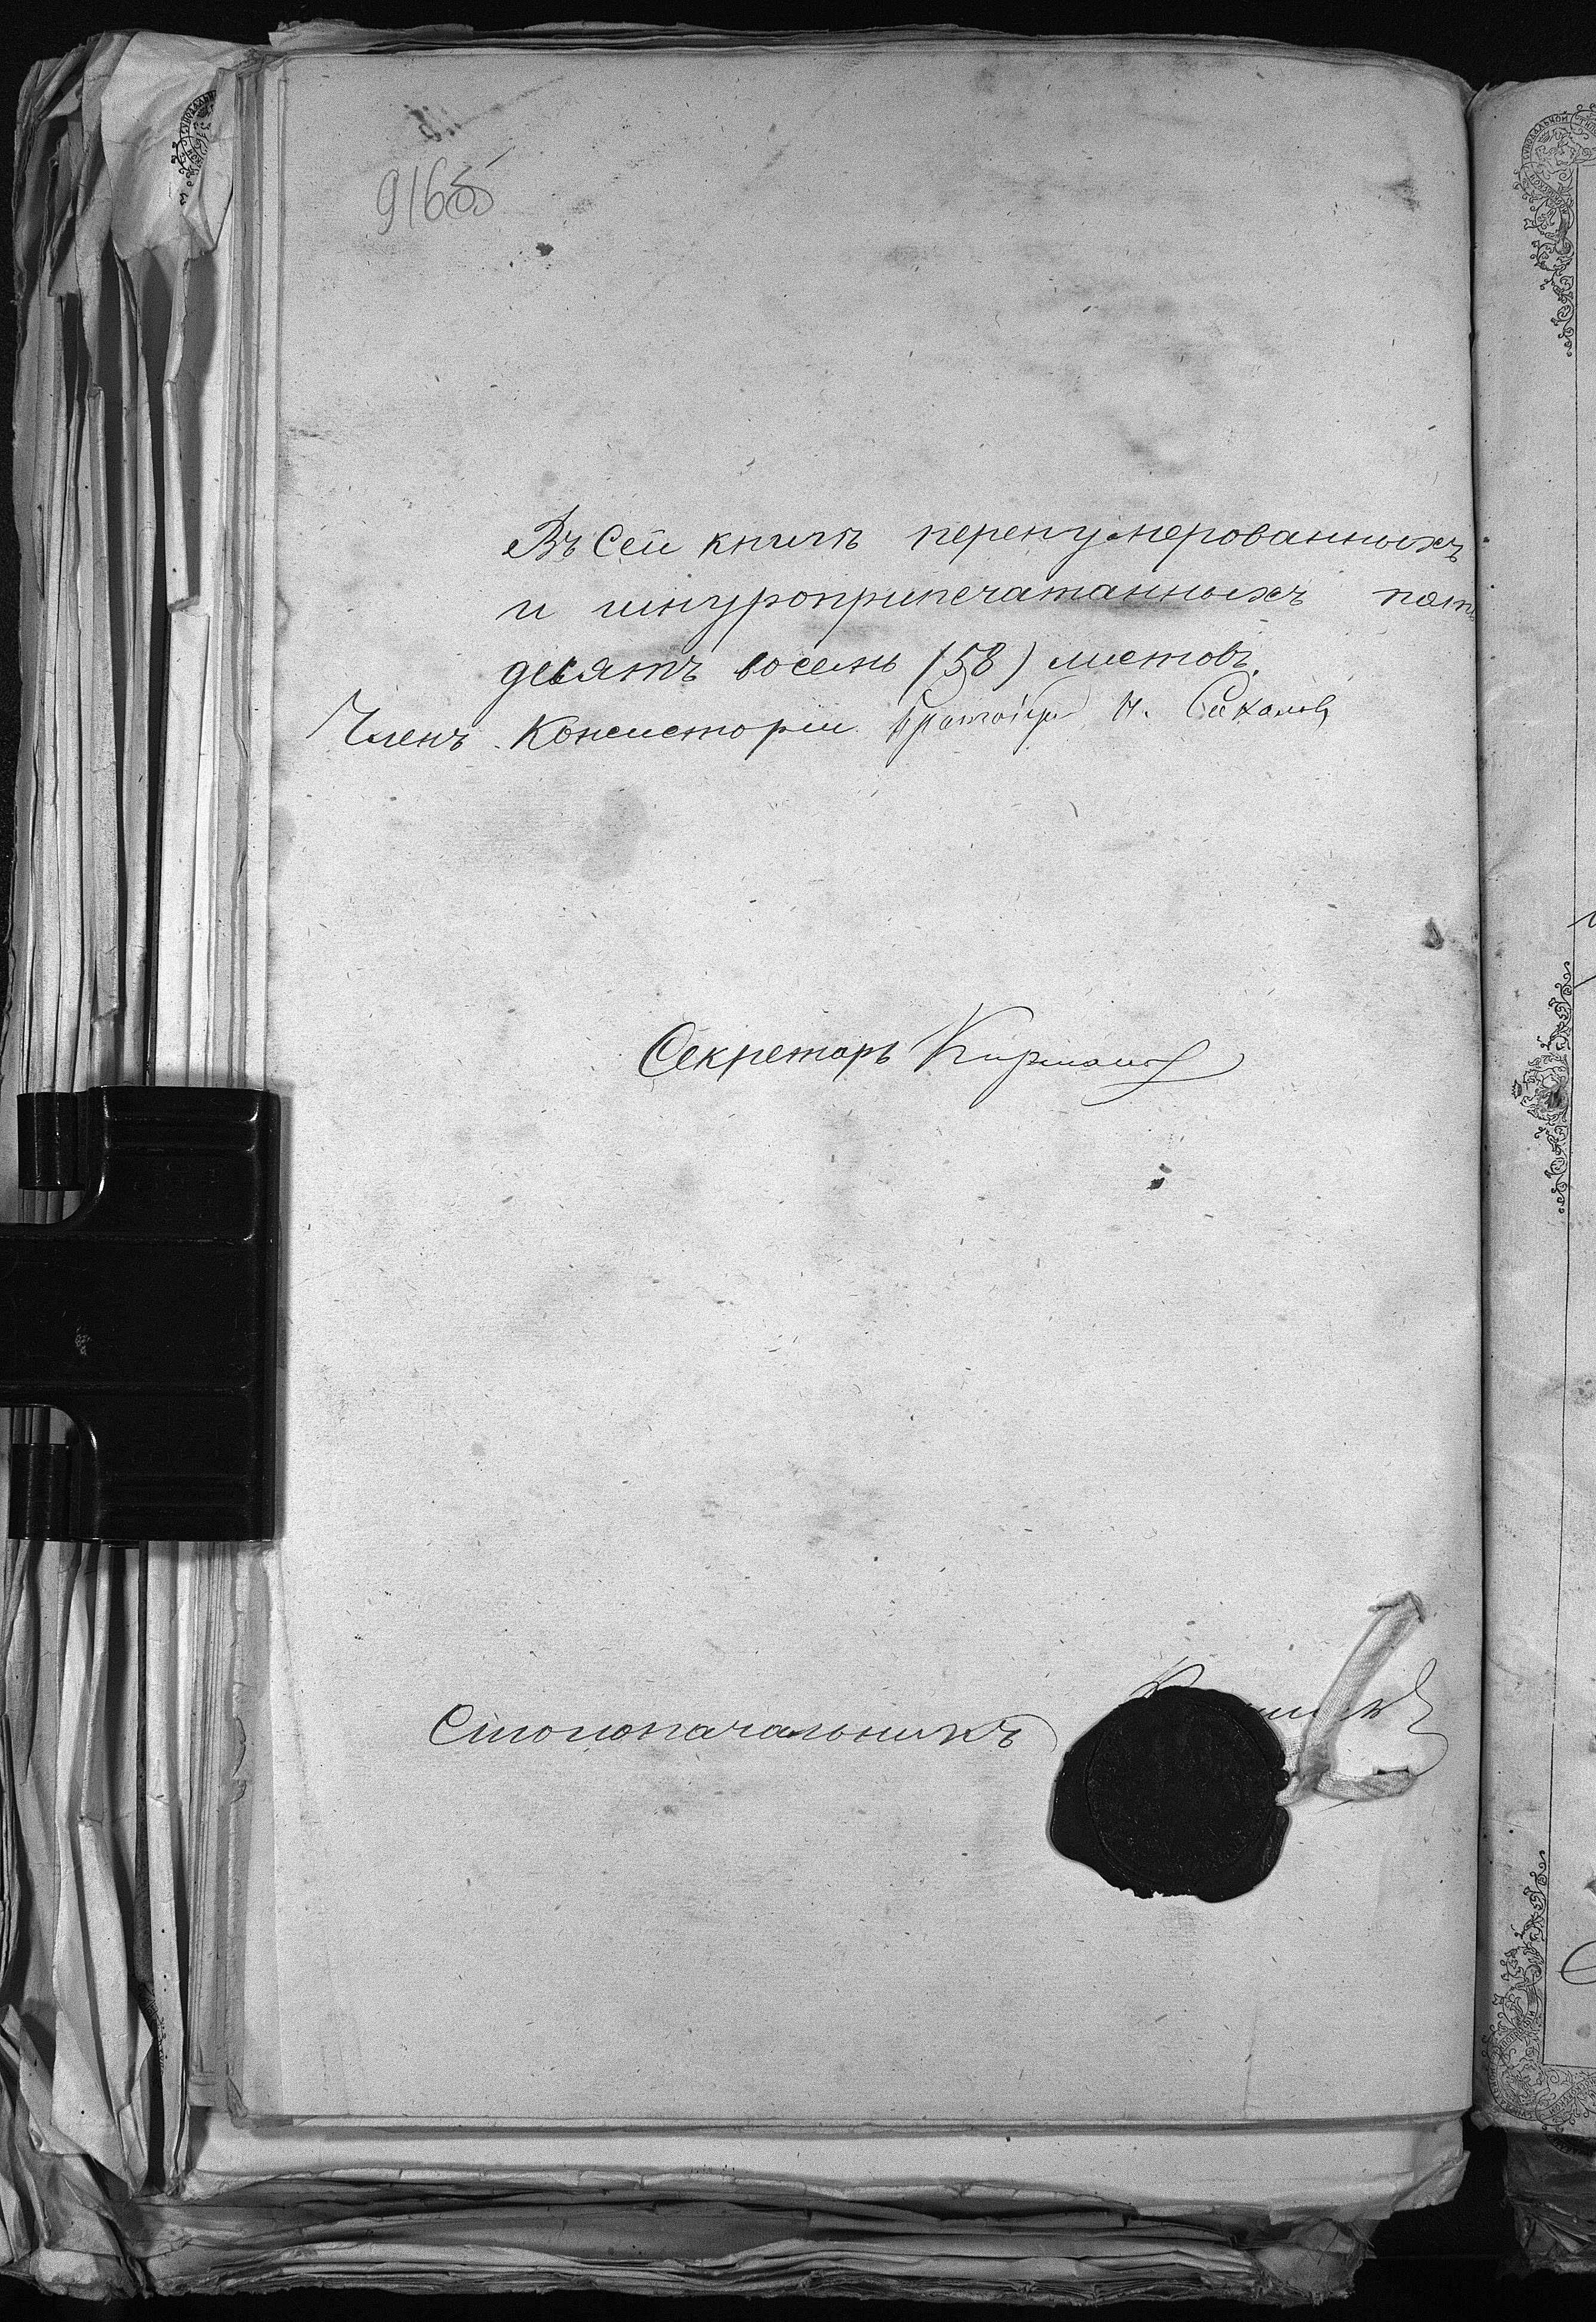 Въ сей книгѣ перенумерованныхъ
и шнуроприпечатанныхъ пять
десятъ восемь (58) листовъ.
Членъ Консисторіи Протоіерей
Секретарь
Столоначальникъ